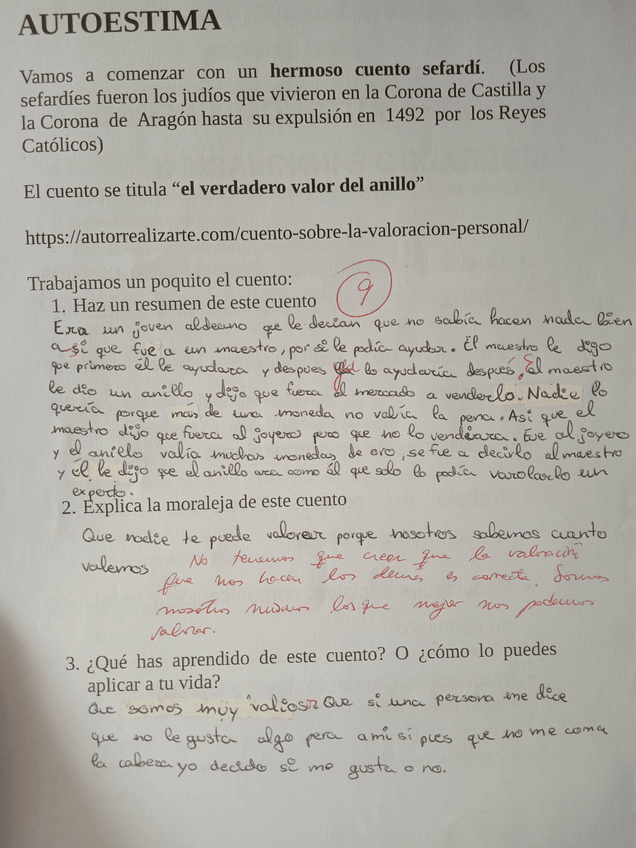 AUTOESTIMA
Vamos a comenzar con un hermoso cuento sefardí. (Los
sefardíes fueron los judíos que vivieron en la Corona de Castilla y
la Corona de Aragón hasta su expulsión en 1492 por los Reyes
Católicos)
El cuento se titula “el verdadero valor del anillo”
https://autorrealizarte.com/cuento-sobre-la-valoracion-personal/
Trabajamos un poquito el cuento:
1. Haz un resumen de este cuento
9
Era un joven aldeano que le decían que no sabía hacen nada bien
así que fue a un maestro, por si le podía ayudar. El maestro le digo
que primero él le ayudara y despues lo ayudaría después. El maestro
le dio un anillo y dijo que fuera al mercado a venderlo. Nadie lo
quería porque más de una moneda no valía la pena. Asi que el
maestro dijo que fuera al joyero pero que no lo vendiera. Fue al joyero
y el anillo valía muchas monedas de oro, se fue a decirlo al maestro
y él le dijo que el anillo era como él que solo lo podía varolarlo un
experto.
2. Explica la moraleja de este cuento
Que nadie te puede valorar porque nosotros sabemos cuanto
valemos
No tenemos que creer que la valoración
que nos hacen los demás es correcta. Somos
nosotros mismos los que mejor nos podemos
valorar.
3. ¿Qué has aprendido de este cuento? O ¿cómo lo puedes
aplicar a tu vida?
Que somos muy valiosos Que si una persona me dice
que no le gusta algo pero a mi sí pues que no me coma
la cabeza yo decido si me gusta o no.